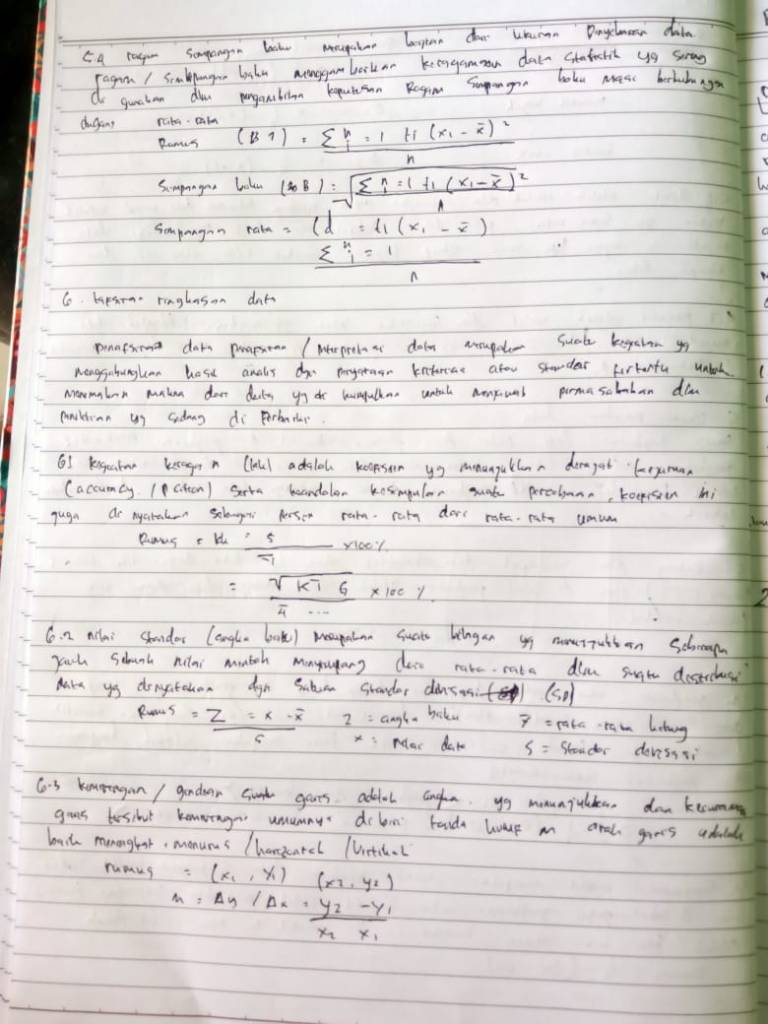 5.4 ragam simpangan baku merupakan bagian dari ukuran Penyebaran data
ragam / simpangan baku menggambarkan keragaman data statistik yg sering
di gunakan dlm pengambilan keputusan Ragam simpangan baku masi berhubungan
dengan rata-rata
Rumus = Σ n i = 1 fi (x1 - x̄)²
n
Simpangan baku = √Σ n i = 1 fi (x1 - x̄)²
n
Simpangan rata = (d = f1 (x1 - x̄)
Σ n i = 1
n
6. tapsiran ringkasan data
penafsiran data penafsiran / interpretasi data merupakan suatu kegiatan yg
menggabungkan hasil analis dgn pernyataan kriteria atau standar tertentu untuk
menemukan makna dari data yg di kumpulkan untuk menjawab permasalahan dlm
yg sedang di
61 keragaman adalah koefisien yg menunjukkan derajat
(accuracy / ) serta keandalan kesimpulan suatu percobaan, koefisien ini
juga di nyatakan sebagai persen rata-rata dari rata-rata umum
Rumus = kk = s x100%
= √KT G x 100 %
6.2 nilai standar (angka baku) merupakan suatu bilangan yg menunjukkan seberapa
jauh sebuah nilai mentah menyimpang dari rata-rata dlm suatu distribusi
data yg dinyatakan dgn satuan standar deviasi (SD)
Rumus = Z = x - x̄ Z = angka baku x̄ = rata-rata hitung
s x = nilai data S = standar deviasi
6.3 kemiringan / gradien suatu garis adalah angka yg menunjukkan dan
garis tersebut kemiringan umumnya di beri tanda huruf m arah garis adalah
baik meningkat, menurus / horizontal / Vertikal
rumus = (x1, Y1) (x2, y2)
m = Δy / Δx = Y2 - Y1
x2 x1